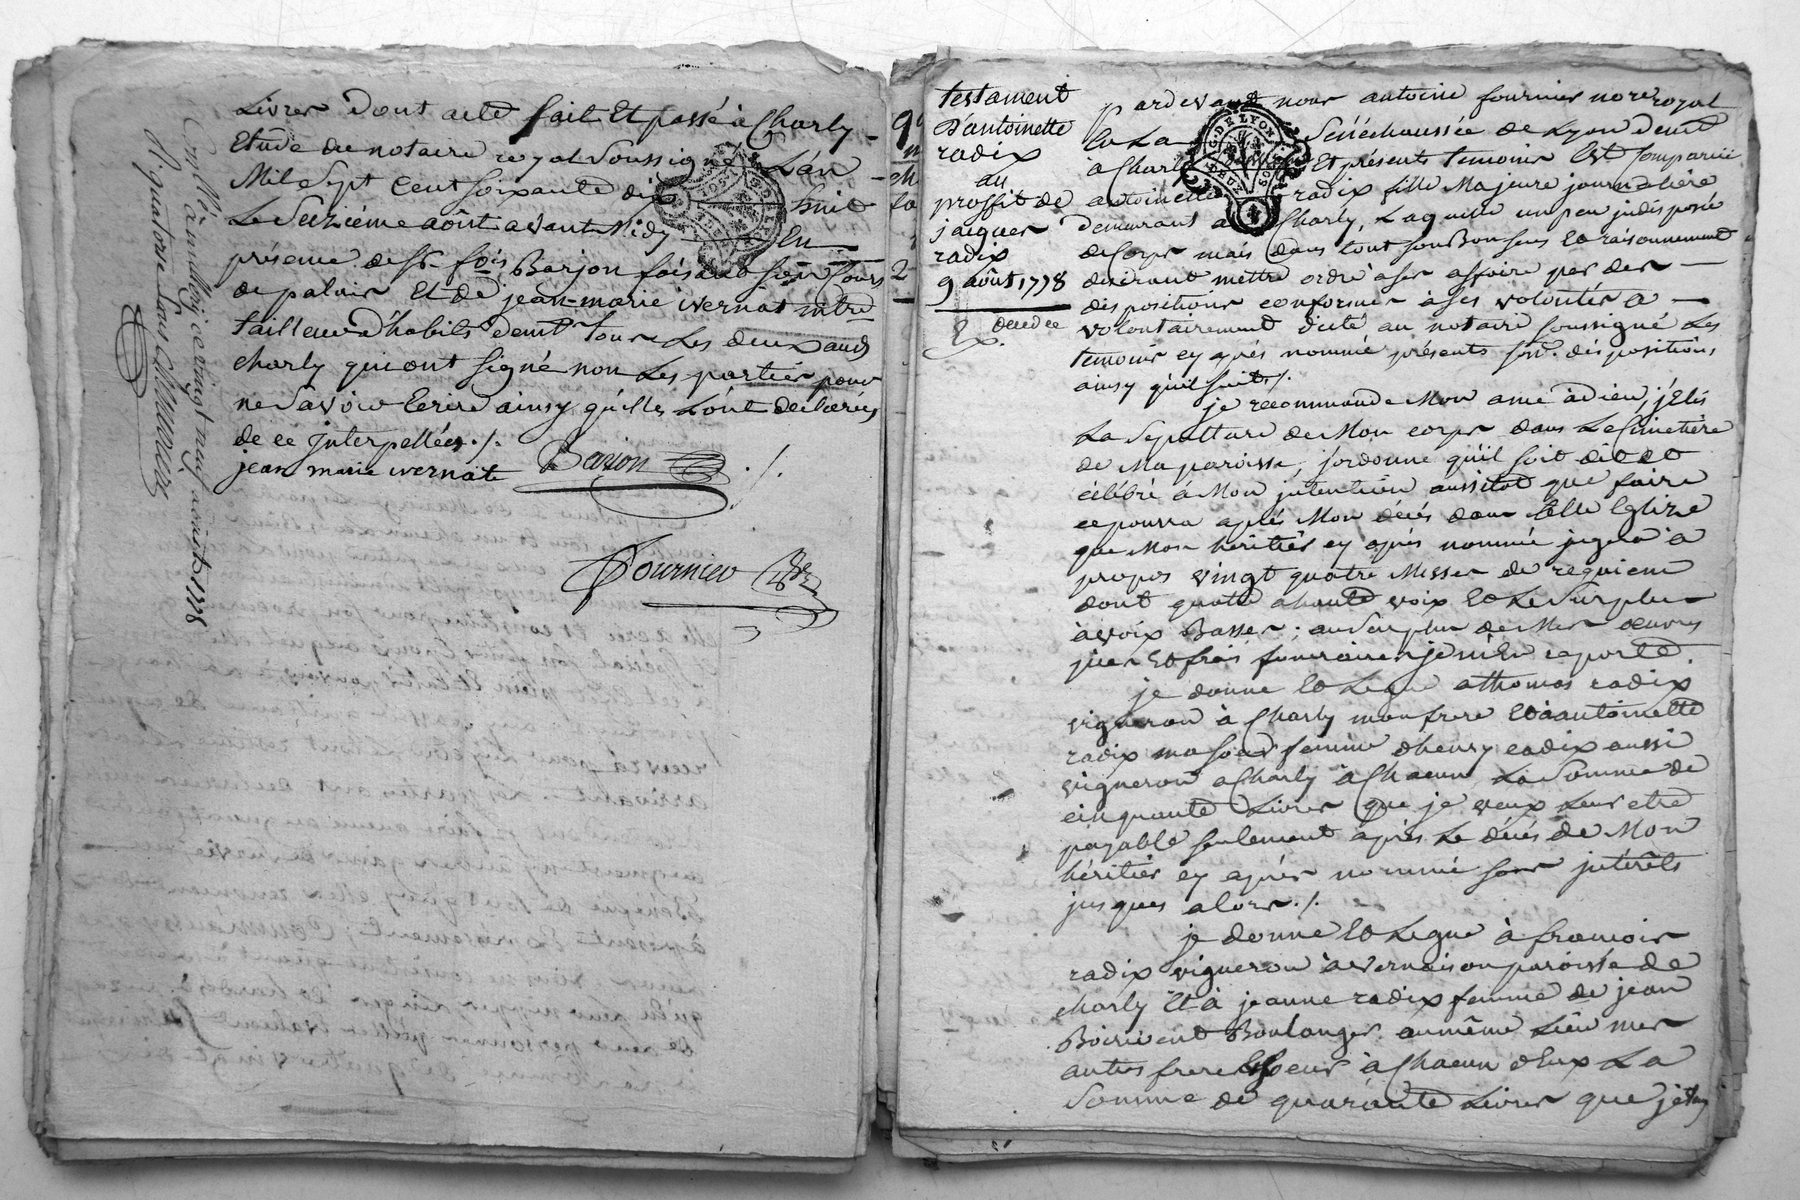 Livres dont acte fait Et passé à Charly
Etude du notaire royal soussigné L'an
Mil Sept Cent soixante dix huit
Le Seizième août avant Midy En
présence de Sr. fois Barjon faisant son Cours
de palais Et de jean-marie ivernat mtre
tailleur d'habits demt tous Les deux aud
charly qui ont signé non Les parties pour
ne Savoir Ecrire ainsy qu'elles L'ont declarées
de ce Interpellées ./.
jean marie ivernat Barjon ./.
Fournier
Con.llé à millery ce vingt neuf août 1778
R quatorze sous
testament
D'antoinette
radix
au
proffit de
jacques
radix
9 août 1778
decedee
pardevant nous antoine fournier nore royal
En La Sénéchaussée de Lyon demt
à Charly Et présents temoins Est Comparüe
antoinette radix fille Majeure journalière
demeurant a Charly, Laquelle un peu jndisposée
de Corps mais dans tout son Bon sens Et raisonnement
desirant mettre ordre à ses affaire par des
dispositions conformes à ses volontés a
volontairement dicté au notaire soussigné Les
temoins cy après nommés présents ses dispositions,
ainsy qu'il suit ./.
je recommande Mon ame à dieu, j'Elis
La Sepulture de Mon corps dans Le Cimetière
de Ma paroisse, j'ordonne qu'il soit dit Et
célébré à Mon jntention aussitot que faire
ce pourra après Mon decés dans telle Eglize
que Mon héritier cy après nommé jugera à
propos vingt quatre Messes de requiem
dont quatre a haute voix Et Le surplus
à voix Basses; au Surplus de Mes oeuvres
pies Et frais funeraires je m'En raporte.
je donne Et Legue a thomas radix
vigneron à Charly mon frere Et à antoinette
radix ma soeur femme d'henry radix aussi
vigneron a Charly à Chacun La Somme de
cinquante Livres que je veux Leur etre
payable seulement après Le décés de Mon
héritier cy après nommé sans jntérêts
jusques alors ./.
je donne Et Legue à francois
radix vigneron à vernaison paroisse de
charly Et à jeanne radix femme de jean
Boirivent Boulanger au même Lieu mes
autres frere Et soeur à Chacun d'Eux La
Somme de quarante Livres que je